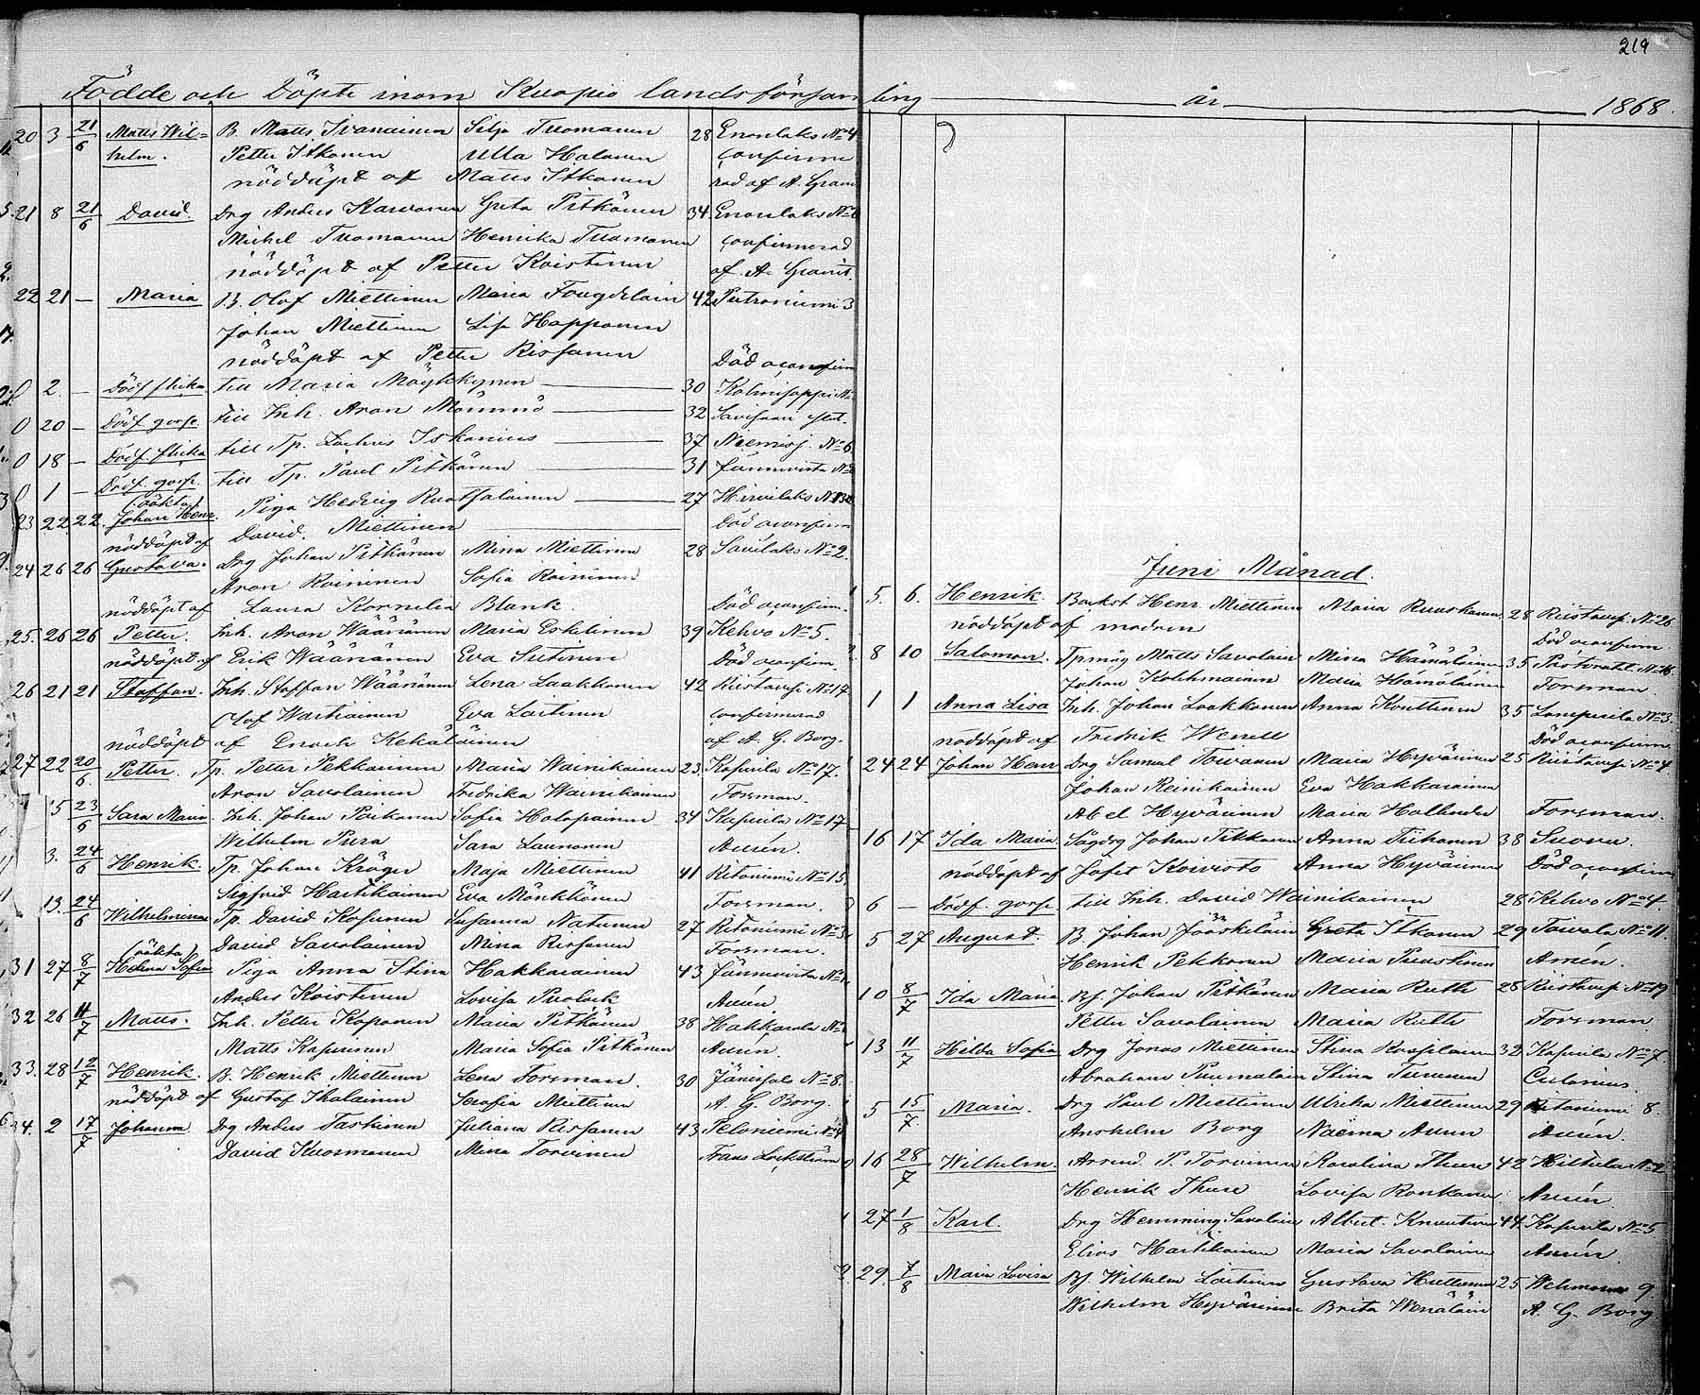 219
Födde och Döpte inom Kuopio landsförsamling år 1868.
20 3 21/6 Matts Wil= B. Matts Ivanainen Silja Tuomanen 28 Enonlaks No 4
helm. Petter Itkonen Ulla Halonen confirme
nöddöpt af Matts Itkonen rad af A. Granit
21 8 21/6 David. Drg Anders Karvonen Greta Pitkänen 34 Enonlaks No
Michel Tuomanen Henrika Tuomanen confirmerad
nöddöpt af Petter Koistinen af A. Granit.
22 21 — Maria B. Olof Miettinen Maria Fougdelain 42 Putroniemi 3
Johan Miettinen Lisa Happonen
nöddöpt af Petter Rissanen Död oconfirm
0 2 — Dödf. flicka till Maria Möykkynen 30 Kolmisoppi No
0 20 — Dödf. gosse till Inh. Aron Mönnnö 32 Savisaari
0 18 — Dödf. flicka till Tp. Zachris Iskanius 37 Niemisj. No 6
0 1 — Dödf. gosse till Tp. Paul Pitkänen 31 Jännevirta No
(oäkta)
23 22 22 Johan Henr. Piga Hedvig Ruotsalainen 27 Hirvilaks No
nöddöpt af David Miettinen Död oconfirm
24 26 26 Gustava. Drg Johan Pitkänen Mina Miettinen 28 Savilaks No 2.
Aron Roininen Sofia Roininen
nöddöpt af Laura Kornelia Blank. Död oconfirm.
25. 26 26 Petter. Inh. Aron Wäänänen Maria Eskelinen 39 Kehvo No 5.
nöddöpt af Erik Wäänänen Eva Sutinen Död oconfirm.
26 21 21 Staffan. Inh. Staffan Wäänänen Lena Laakkonen 42 Ristavesi No 17
Olof Wartiainen Eva Laitinen confirmerad
nöddöpt af Enoch Kekäläinen af A. G. Borg.
27 22 20/6 Petter. Tp. Petter Pekkarinen Maria Wainikainen 23. Kasurila No 17.
Aron Savolainen Fredrika Wainikainen Forsman.
15 23/6 Sara Maria. Inh. Johan Poikonen Sofia Halopainen 34 Kasurila No 17
Wilhelm Pura Sara Launonen Amén.
3. 24/6 Henrik. Tp. Johan Kröger Maja Miettinen 41 Ritoniemi No 15.
Sigfrid Hartikainen Eva Mönkkönen Forsman.
13. 24/6 Wilhelmina Tp. David Kosunen Susanna Natunen 27 Ritoniemi No 3.
David Savolainen Mina Rissanen Forsman.
(oäkta)
31 27 8/7 Helena Sofia Piga Anna Stina Hakkarainen 43 Jännevirta No
Anders Koistinen Lovisa Puolack Amén
32 26 11/7 Matts. Inh. Petter Koponen Maria Pitkänen 38 Hakkarala No
Matts Kasurinen Maria Sofia Pitkänen Amén.
33. 28 12/7 Henrik. B. Henrik Miettinen Lena Forsman. 30 Jänissalo No 8.
nöddöpt af Gustaf Ihalainen Serafia Miettinen A. G. Borg.
34. 2 17/7 Johanna Drg Anders Taskinen Juliana Rissanen 43 Peloniemi No 4
David Kuosmanen Mina Torvinen Frans Lockström
Juni Månad.
5. 6. Henrik Backst Henr. Miettinen Maria Ruuskanen 28 Ristavesi No 26
nöddöpt af modren Död oconfirm
8 10 Salomon. Tpmåg Matts Savolain Mina Hämäläinen 35 Pastoratl. No 16
Johan Kolehmainen Maria Hämäläinen Forsman.
1 1 Anna Lisa Inh. Johan Laakkonen Anna Kouttinen 35 Lamperila No 3
nöddöpt af Fredrik Wenell Död oconfirm
24 24 Johan Henr Drg Samuel Toivanen Maria Hyvärinen 25 Ristavesi No 4
Johan Reinikainen Eva Hakkarainen
Abel Hyvärinen Maria Hollender Forsman.
16 17 Ida Maria. Sågdrg Johan Tikkanen Anna Tiihonen 38 Suovu.
nöddöpt af Josef Koivisto Anna Hyvärinen Död oconfirm
6 — Dödf. gosse till Inh. David Wainikainen 28 Kehvo No 4.
5 27 August. B. Johan Jääskeläin Greta Itkonen 29 Toivala No 11.
Henrik Pekkonen Maria Puustinen Amén.
10 8/7 Ida Maria Bs. Johan Pitkänen Maria Ruth 28 Ristavesi No 19
Petter Savolainen Maria Ruth Forsman
13 11/7 Hilda Sofia Drg Jonas Miettinen Stina Ruuplain 32 Kasurila No 7.
Abraham Puumalain Stina Turunen Calonius
5 15/7 Maria. Drg Paul Miettinen Ulrika Miettinen 29 Ritoniemi 8.
Anshelm Borg Naema Amen Amén.
16 28/7 Wilhelm. Arrend. P. Torvinen Karolina Thure 42 Hiltula No 2
Henrik Thure Lovisa Ronkanen Amén
27 1/8 Karl. Drg Hemming Savolain Albert. Knuutinen 44 Kasurila No 5
Elias Hartikainen Maria Savolainen Amén
29 7/8 Maria Lovisa Bs. Wilhelm Laitinen Gustava Huttunen 25 Wehmersa 9.
Wilhelm Hyvärinen Brita Wenäläin A. G. Borg